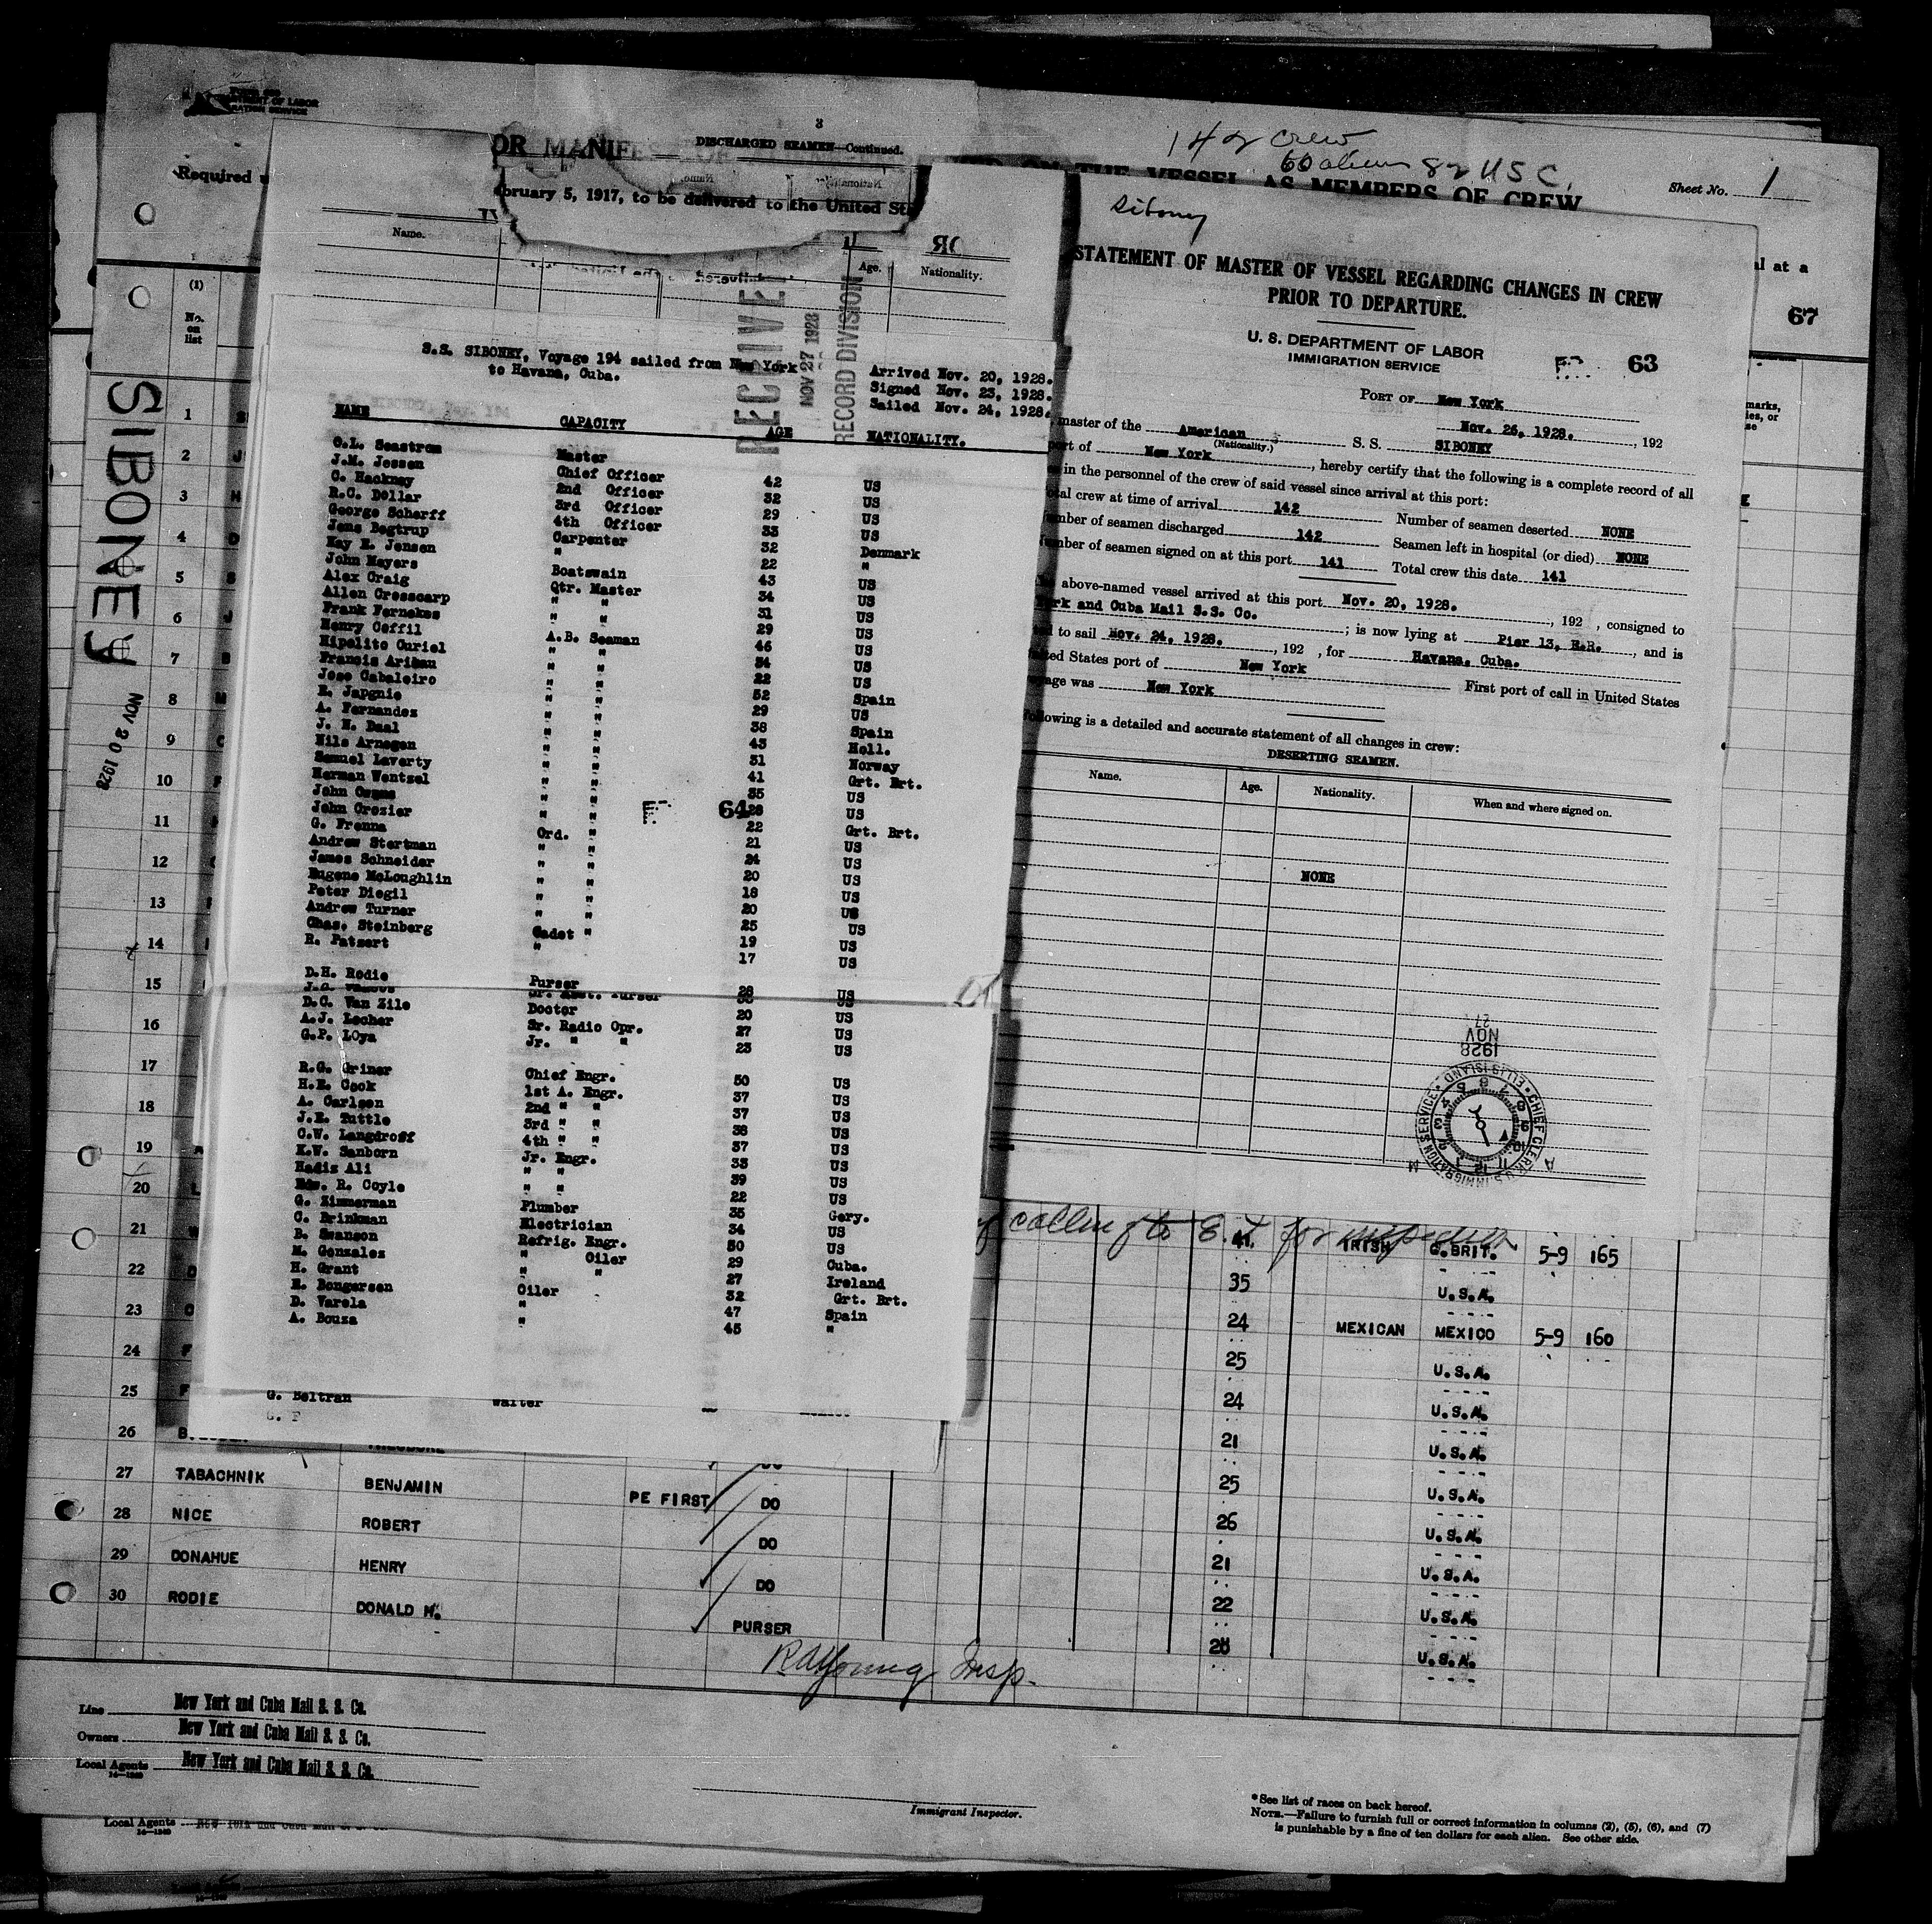 DEPARTMENT OF LABOR
Required
OR MANIF
3
DISCHARGED SEAMEN—Continued.
bruary 5, 1917, to be delivered to the United St
Name.
Age.
Nationality.
142 crew
60 aliens 82 U S C.
ON THE VESSEL AS MEMBERS OF CREW
Sheet No. 1
al at a
67
(1)
No. on list
SIBONEY
NOV 20 1928
RECEIVED
NOV 27 1928
RECORD DIVISION
S.S. SIBONEY, Voyage 194 sailed from New York
to Havana, Cuba.
Arrived Nov. 20, 1928.
Signed Nov. 23, 1928.
Sailed Nov. 24, 1928.
NAME CAPACITY AGE NATIONALITY.
C.L. Seastrom Master 42 US
J.M. Jessen Chief Officer 32 US
C. Hackney 2nd Officer 29 US
R.C. Dollar 3rd Officer 33 US
George Scharff 4th Officer 32 Denmark
Jens Bogtrup Carpenter 22 "
Kay E. Jensen " 43 US
John Mayers Boatswain 34 US
Alex Craig Qtr. Master 31 US
Allen Crosscarp " " 29 US
Frank Fernekes " " 46 US
Henry Coffil " " 34 US
Hipolito Curiel A.B. Seaman 22 US
Francis Ariban " " 52 Spain
Jose Cabaleiro " " 29 US
E. Japgnie " " 38 Spain
A. Fernandez " " 43 Holl.
J. H. Daal " " 31 Norway
Nils Arnesen " " 41 Grt. Brt.
Samuel Laverty " " 35 US
Herman Wentzel " " 28 US
John Owens " " 22 Grt. Brt.
John Crozier " " 21 US
G. Frenna Ord. " 24 US
Andrew Stertman " " 20 US
James Schneider " " 18 US
Eugene McLoughlin " " 20 US
Peter Diegil " " 25 US
Andrew Turner " " 19 US
Chas. Steinberg Cadet " 17 US
R. Patzert "
64
D.H. Rodie Purser 28 US
D.C. Van Zile Doctor 20 US
A.J. Lecher Sr. Radio Opr. 27 US
G.P. LOya Jr. " " 23 US
R.G. Griner Chief Engr. 50 US
H.E. Cook 1st A. Engr. 37 US
A. Carlsen 2nd " " 37 US
J.E. Tuttle 3rd " " 38 US
C.W. Langdroff 4th " " 37 US
K.W. Sanborn Jr. Engr. 33 US
Hadis Ali " " 39 US
Edw. R. Coyle " " 22 US
G. Zimmerman Plumber 35 Gery.
C. Brinkman Electrician 34 US
B. Swanson Refrig. Engr. 50 US
M. Gonzales " Oiler 29 Cuba.
H. Grant " " 27 Ireland
E. Bongersen Oiler 32 Grt. Brt.
D. Varela " 47 Spain
A. Bouza " 45 "
G. Beltran Waiter
Siboney
STATEMENT OF MASTER OF VESSEL REGARDING CHANGES IN CREW
PRIOR TO DEPARTURE.
U. S. DEPARTMENT OF LABOR
IMMIGRATION SERVICE
63
PORT OF New York
Nov. 26, 1928. , 192
master of the American S. S. SIBONEY
(Nationality.)
port of New York , hereby certify that the following is a complete record of all
in the personnel of the crew of said vessel since arrival at this port:
total crew at time of arrival 142 Number of seamen deserted NONE
umber of seamen discharged 142 Seamen left in hospital (or died) NONE
umber of seamen signed on at this port 141 Total crew this date 141
above-named vessel arrived at this port Nov. 20, 1928. , 192 , consigned to
York and Cuba Mail S.S. Co. ; is now lying at Pier 13, E.R. , and is
to sail Nov. 24, 1928. , 192 , for Havana, Cuba.
ited States port of New York First port of call in United States
yage was New York
following is a detailed and accurate statement of all changes in crew:
DESERTING SEAMEN.
Name. Age. Nationality. When and where signed on.
NONE
1928
NOV
27
CHIEF CLERK U.S. IMMIGRATION SERVICE ELLIS ISLAND
1
2
3
4
5
6
7
8
9
10
11
12
13
14
15
16
17
18
19
20
21
22
23
24
25
26
calling to E.I. for inspection
41 IRISH G.BRIT. 5-9 165
35 U.S.A.
24 MEXICAN MEXICO 5-9 160
25 U.S.A.
24 U.S.A.
21 U.S.A.
27 TABACHNIK BENJAMIN PE FIRST DO 25 U.S.A.
28 NICE ROBERT DO 26 U.S.A.
29 DONAHUE HENRY DO 21 U.S.A.
30 RODIE DONALD H. PURSER 22 U.S.A.
28 U.S.A.
RAYoung Insp.
Line New York and Cuba Mail S. S. Co.
Owners New York and Cuba Mail S. S. Co.
Local Agents New York and Cuba Mail S. S. Co.
Immigrant Inspector.
* See list of races on back hereof.
NOTE.—Failure to furnish full or correct information in columns (2), (5), (6), and (7)
is punishable by a fine of ten dollars for each alien. See other side.
Local Agents